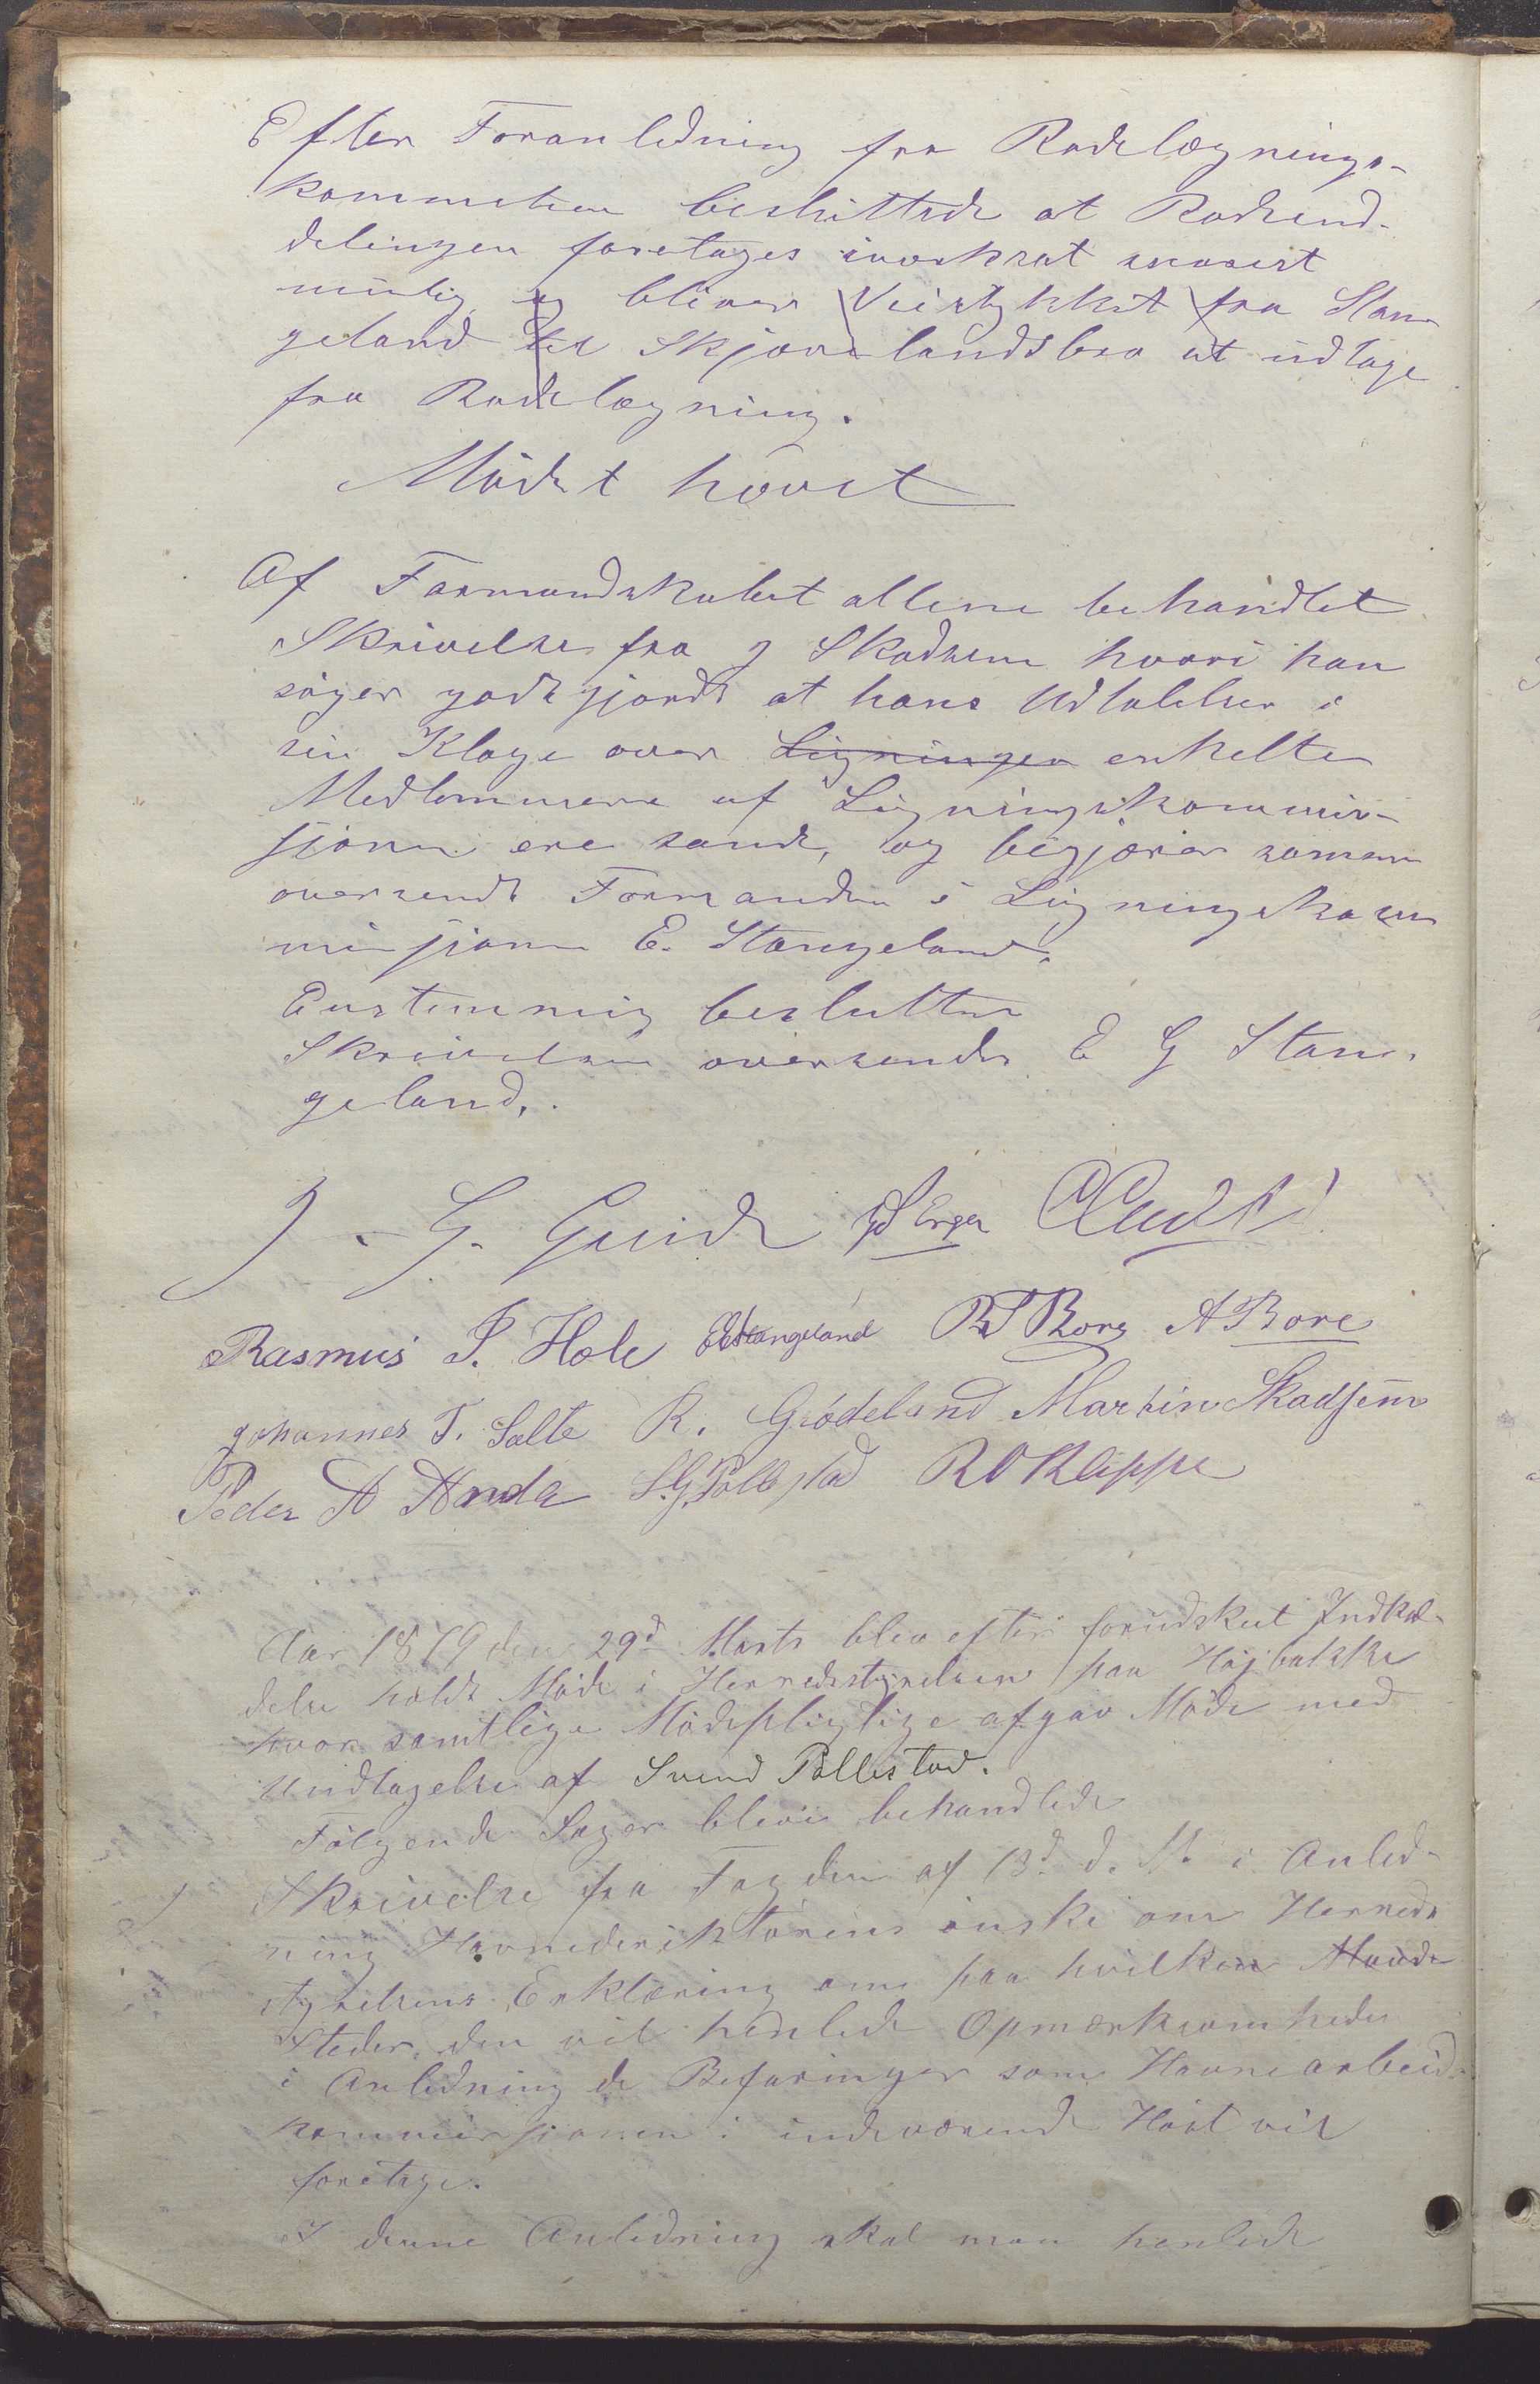 Efter Foranledning fra Rodelægnings-
kommitten besluttede at Rodeind-
delingen foretages snarest
mulig og bliver Veistykket fra Stan
geland til Skjævelandsbro at udtage
fra Rodelægning.
Mödet hævet
Af Formandskabet allene behandlet
Skrivelse fra J Skadsem hvori han
söger godtgjordt at hans Udtalelser i
sin Klage over Ligningen enkelte
Medlemmere af Ligningskommis-
sjonen ere sande, og begjærer samme
oversendt Formanden i Ligningskom
missjonen E. Stangeland.
Enstemmig besluttes
Skrivelsen oversendes E G Stan-
geland.
J. G. Gruide Erga
Rasmus P. Hole EStangeland Bore ABore
Johannes T. Salte R. Grödeland Martin Skadsem
Peder A Anda S.G. Pollestad R O Kleppe
Aar 1879 den 29d Marts blev efter forudskeet Indkal-
delse holdt Möde i Herredsstyrelsen paa Höjbakke
hvor samtlige Mödepligtige afgav Möde med
Undtagelse af Svend Pollestad.
Fölgende Sager bleve behandlede
Skrivelse fra Fogden af 13d d. M. i Anled-
ning Havnedirektörens önske om Herreds
styrelsens Erklæring om paa hvilken
Steder den vil henlede Opmærksomheden
i Anledning de Befaringer som Havnearbeid-
kommissjonen i indeværende Höst vil
foretage.
I denne Anledning skal man henlede